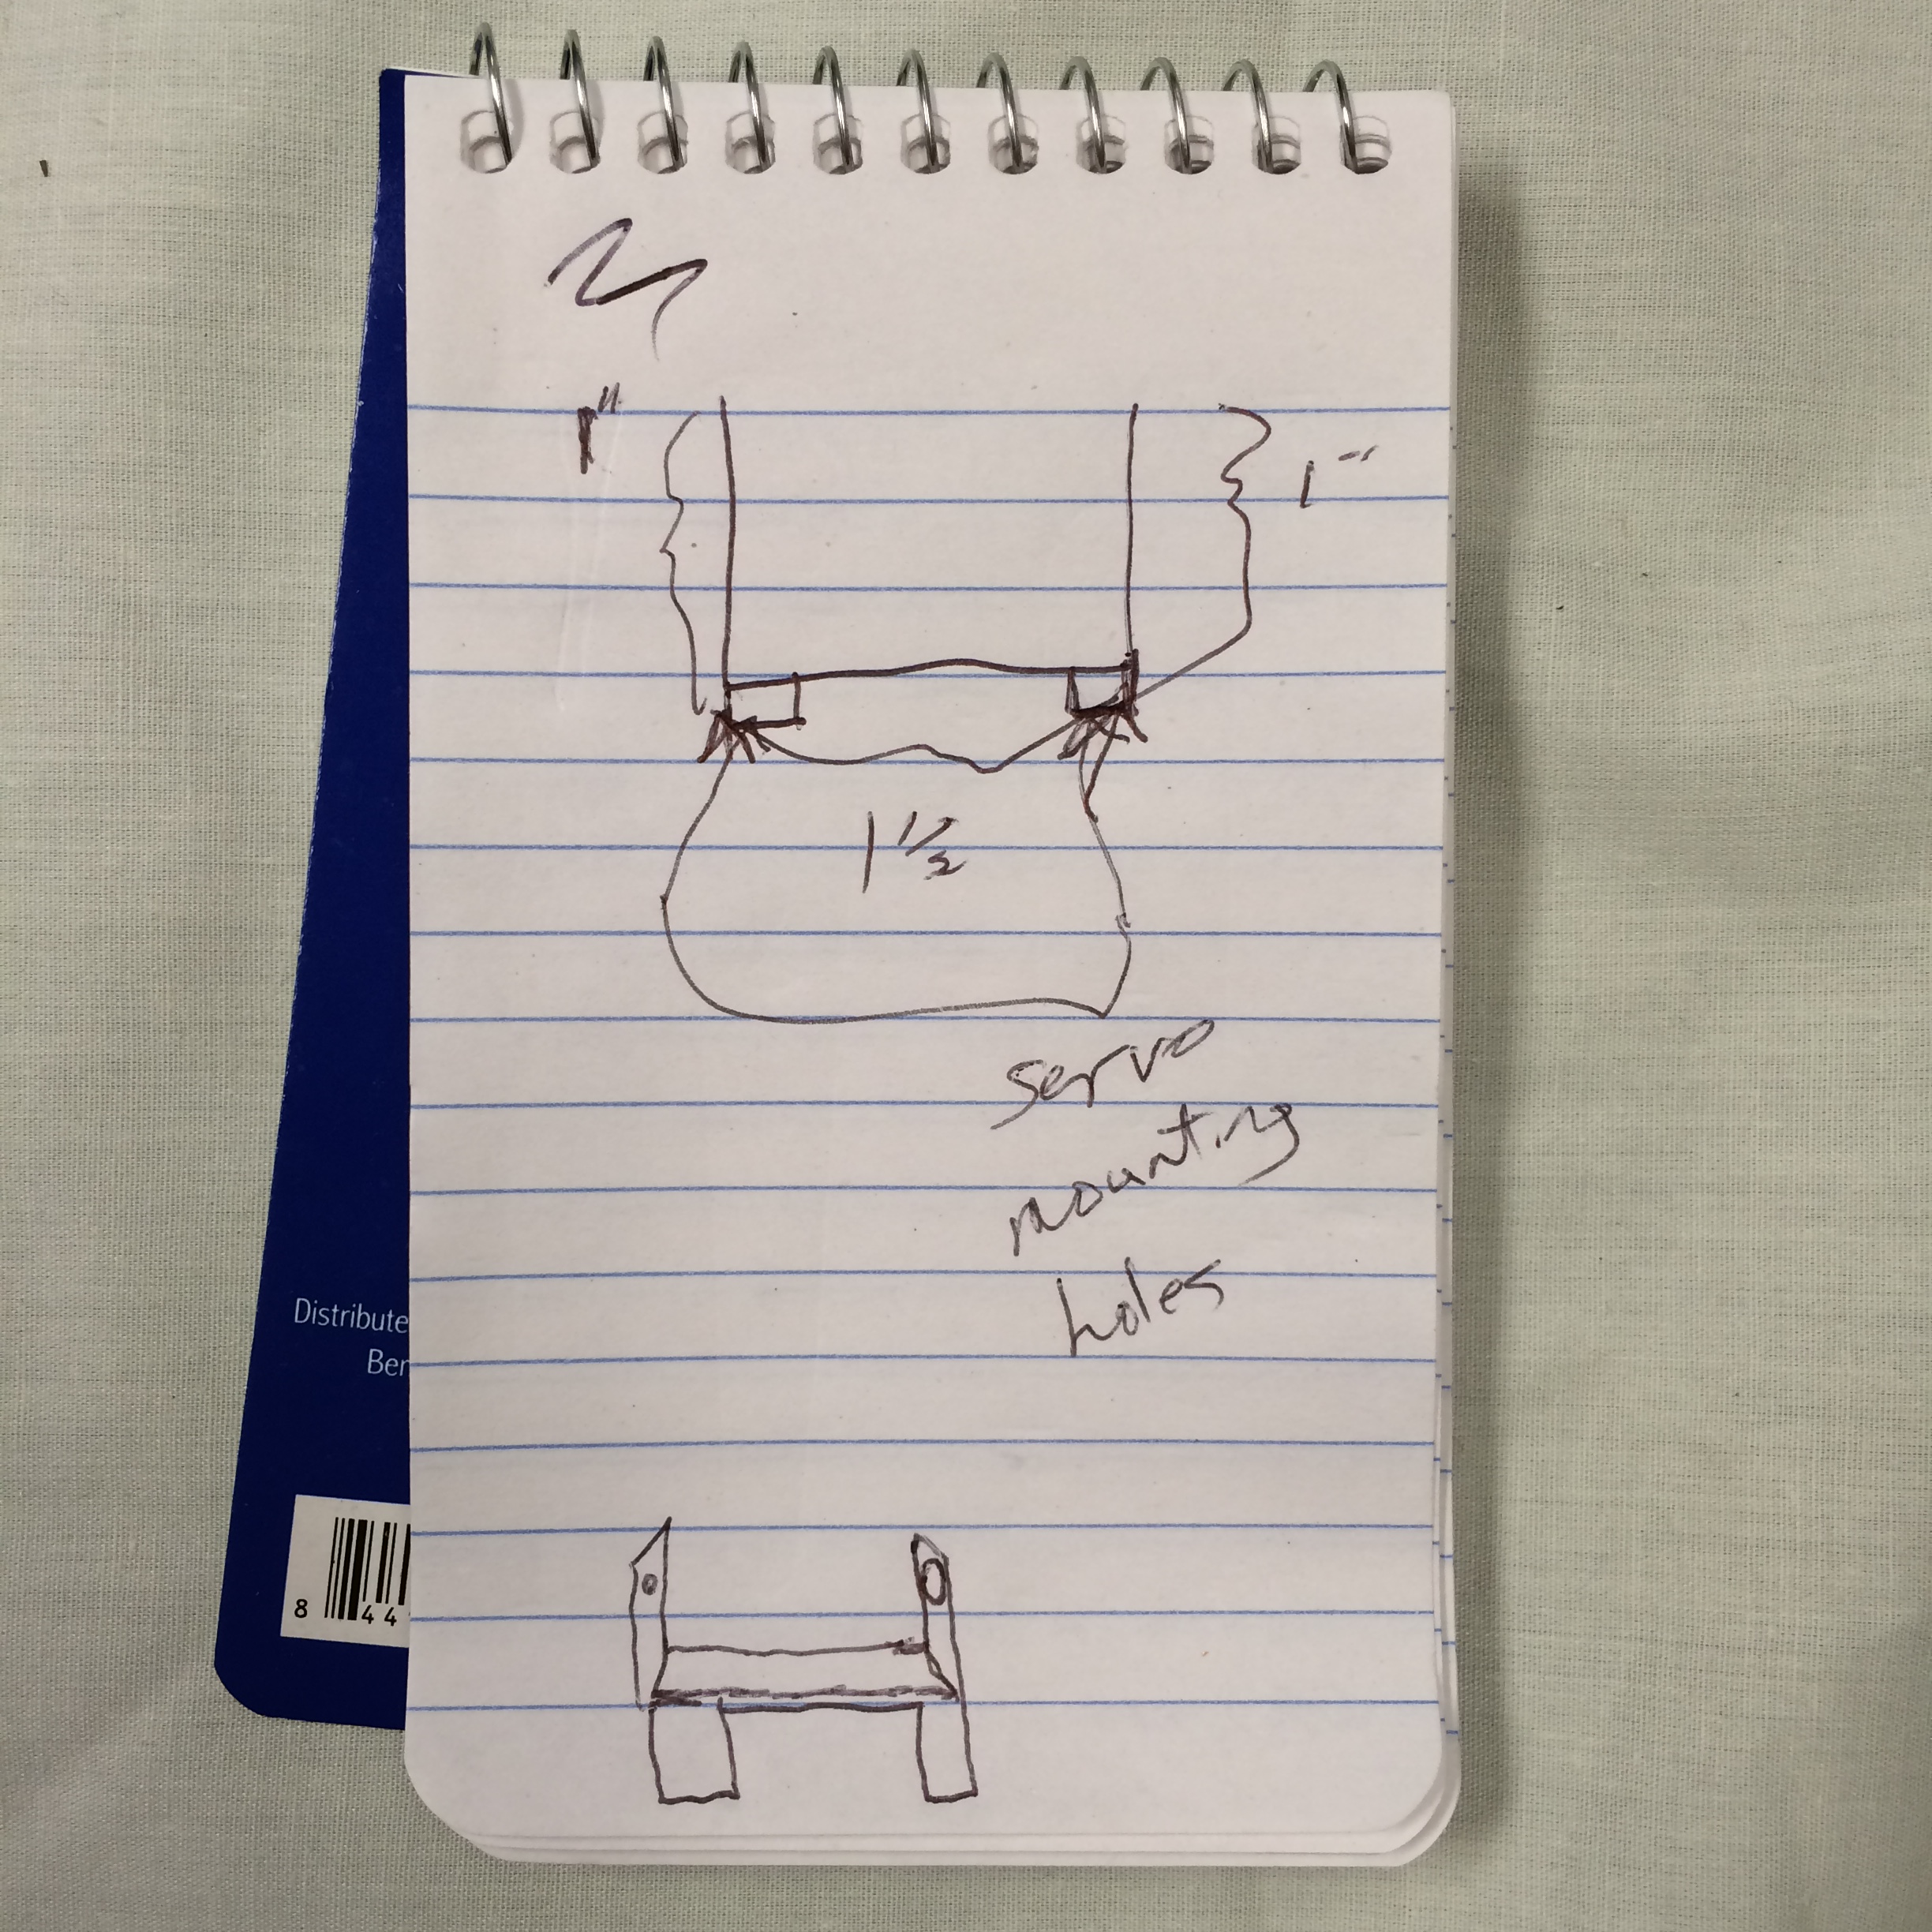 1"
1"
1 1/2
servo
mounting
holes
Distribute
Ber
8 44